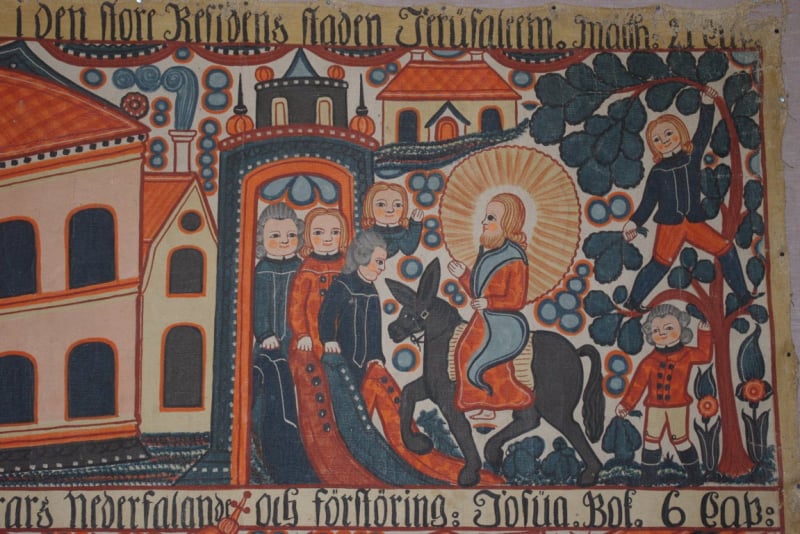 i den store Residens staden Jerüsaleem. Math: 21 Cap:
rars Nederfalande och förstöring: Josüa. Bok. 6 Cap: